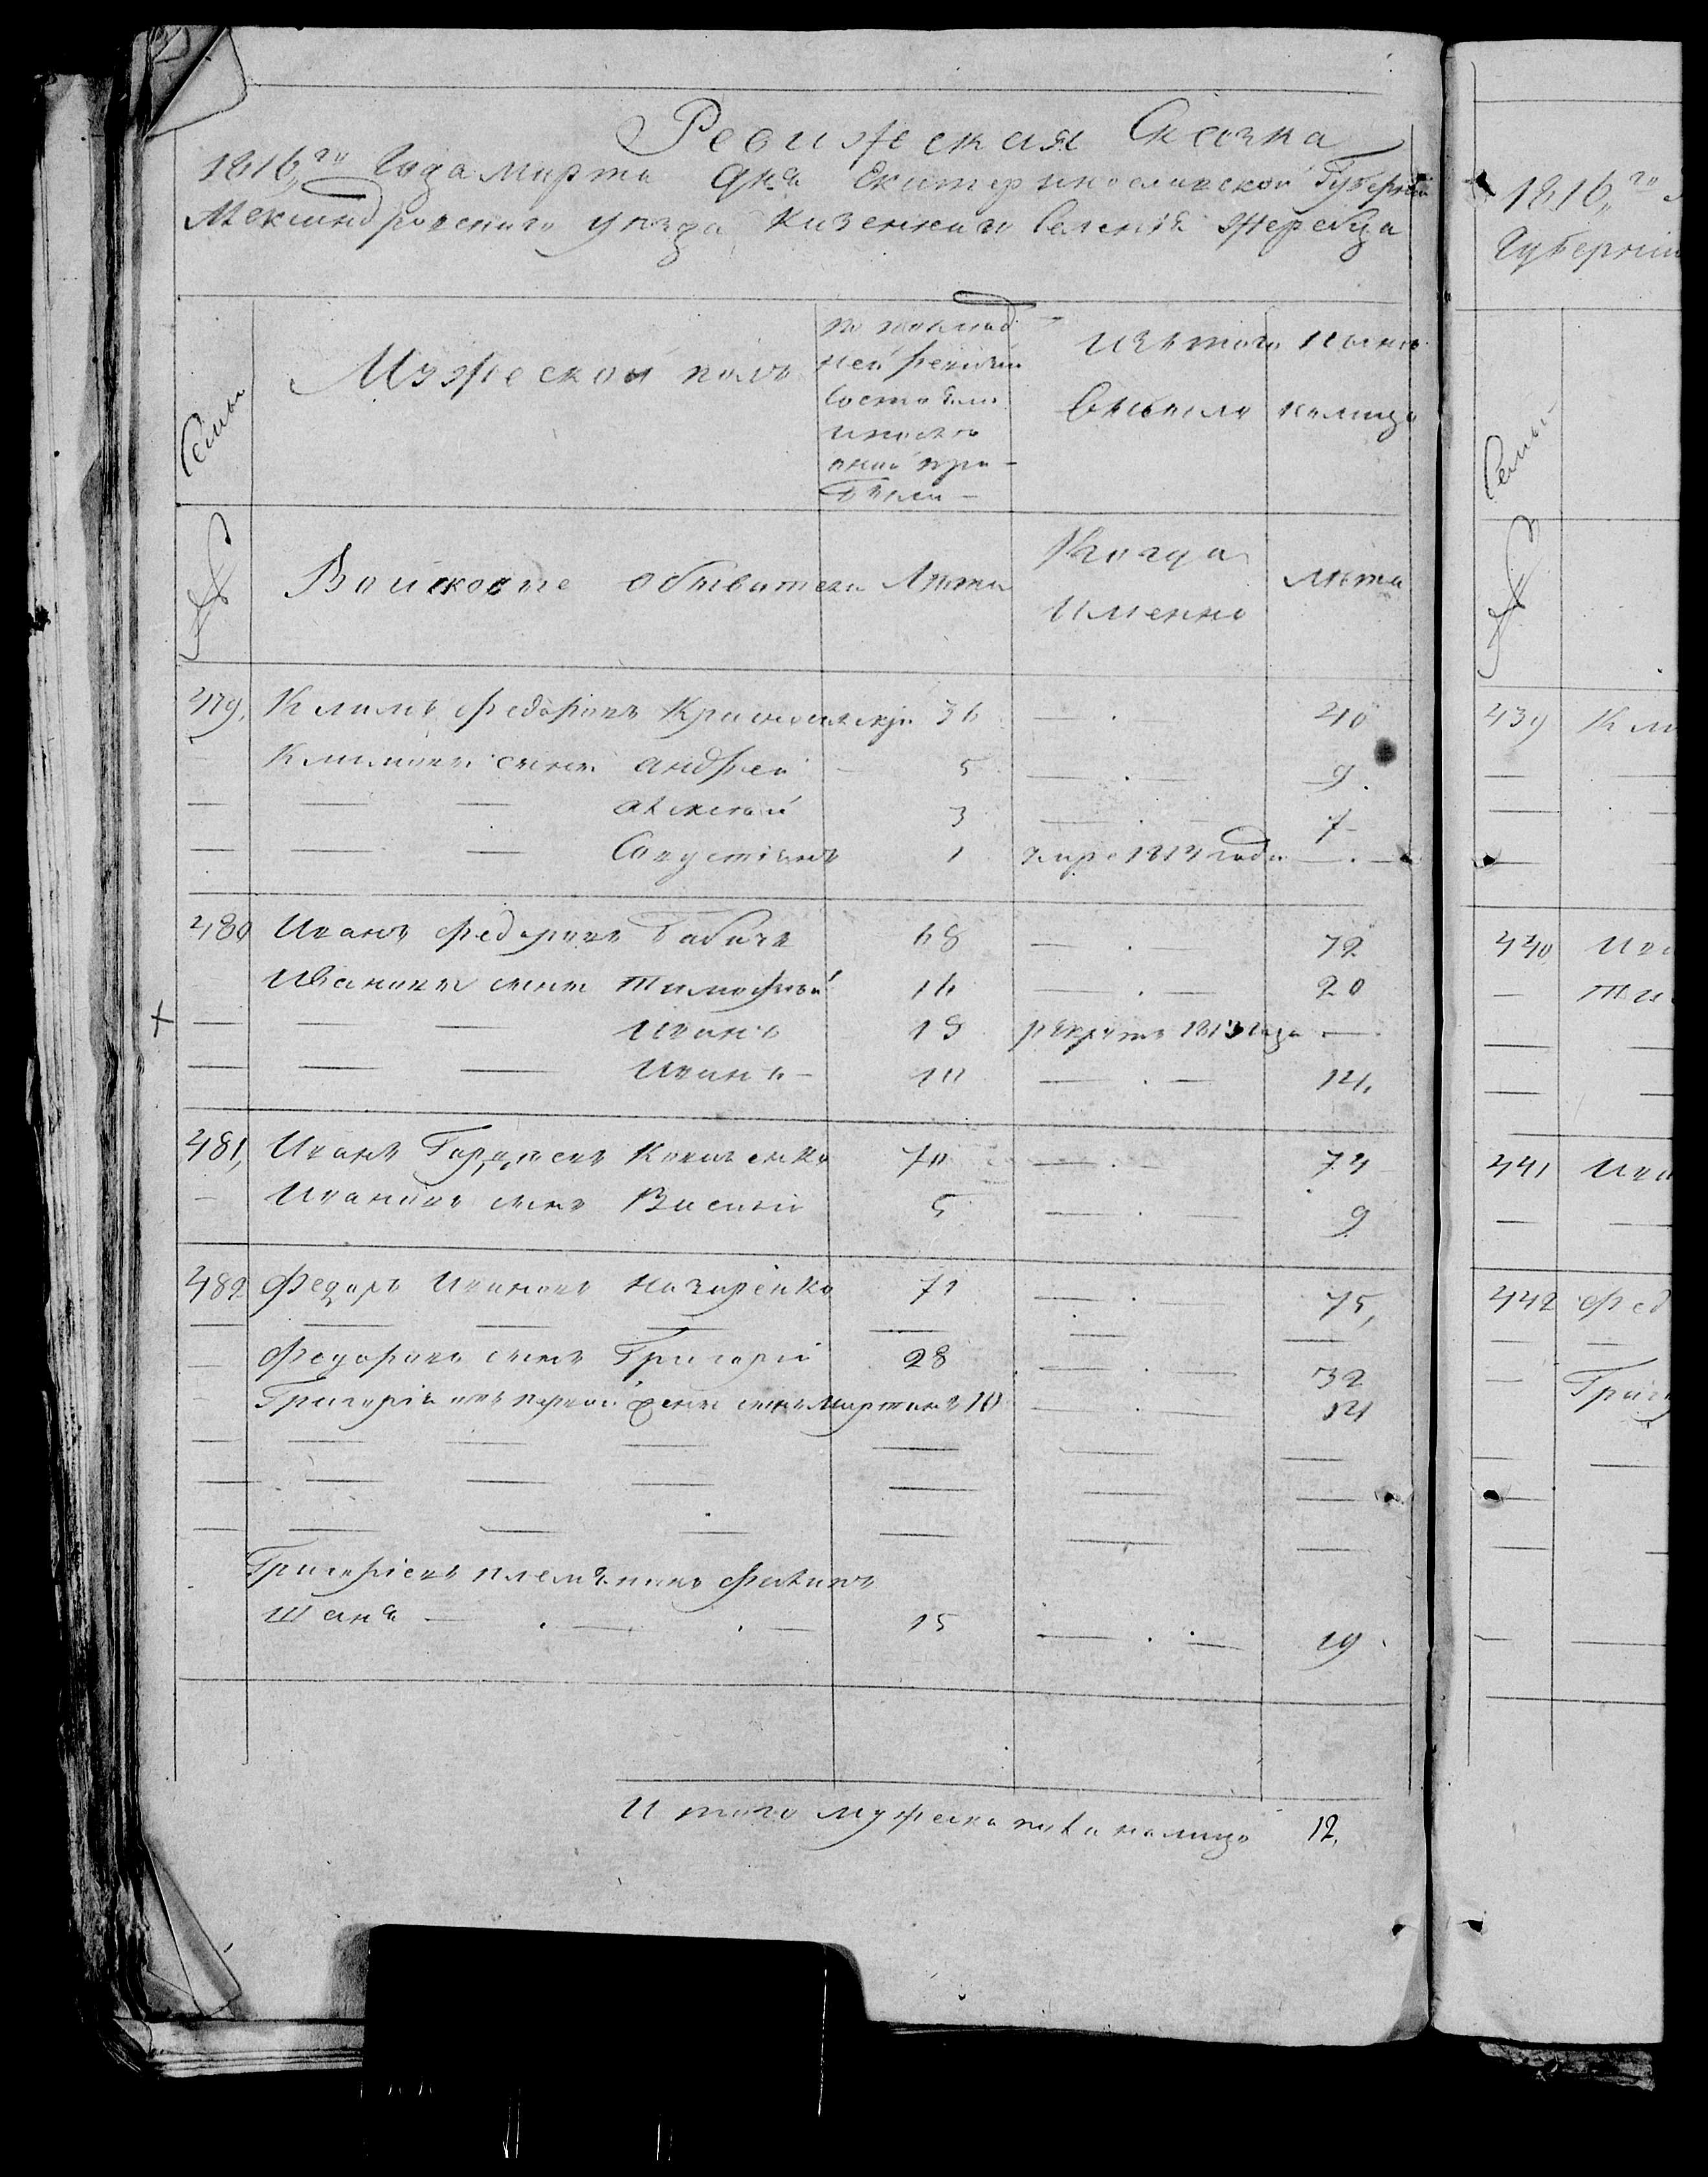 Ревижская Скаска
1816„го Года марта дня Екатеринославской Губерніи
Александровского уезда казенного Селенія Жеребца
Семьи
Мужеской полъ
по послед
ней ревизіи
состояло
и после
оной при
было
изъ того
выбыло
ныне
налицо
№
Войсковые обыватели
Лѣта
Когда
имянно
лѣта
479, Климъ Федоровъ 36 — . 40
Климовы сыны андрей — 5 — . — 9.
— — — алексей 3 — . — 7
— — — 1 умре 1814 года — . —
480 Иванъ Федоровъ Бабичъ 68 — . — 72
Ивановы сыны Тимофей 16 — . — 20
— — — Иванъ 19 рекрутъ 1813 года —
— — — Иванъ — 10 — . — 14,
481, Иванъ Гордеевъ 70 — . — 74
— Ивановъ сынъ Василій 5 — . — 9
482 Федоръ Ивановъ Назаренко 71 — . — 75,
— — — — — — —
— Федоровъ сынъ Григорій 28 — . — 32
— Григорія отъ первой жены сынъ Мартинъ 10 — . — 14
— — — — — — —
— — — — — — —
— — — — — — —
Григоріевъ племянникъ
— . — . — 15 — . . — 19.
Итого мужеска пола налицо 12,
1816„го
Губерніи
Семьи
№
439 Кли
—
—
—
440 Ива
— Ти
— —
— —
441 Ива
— —
442 Фед
— —
— Григ
— —
—
— —
— —